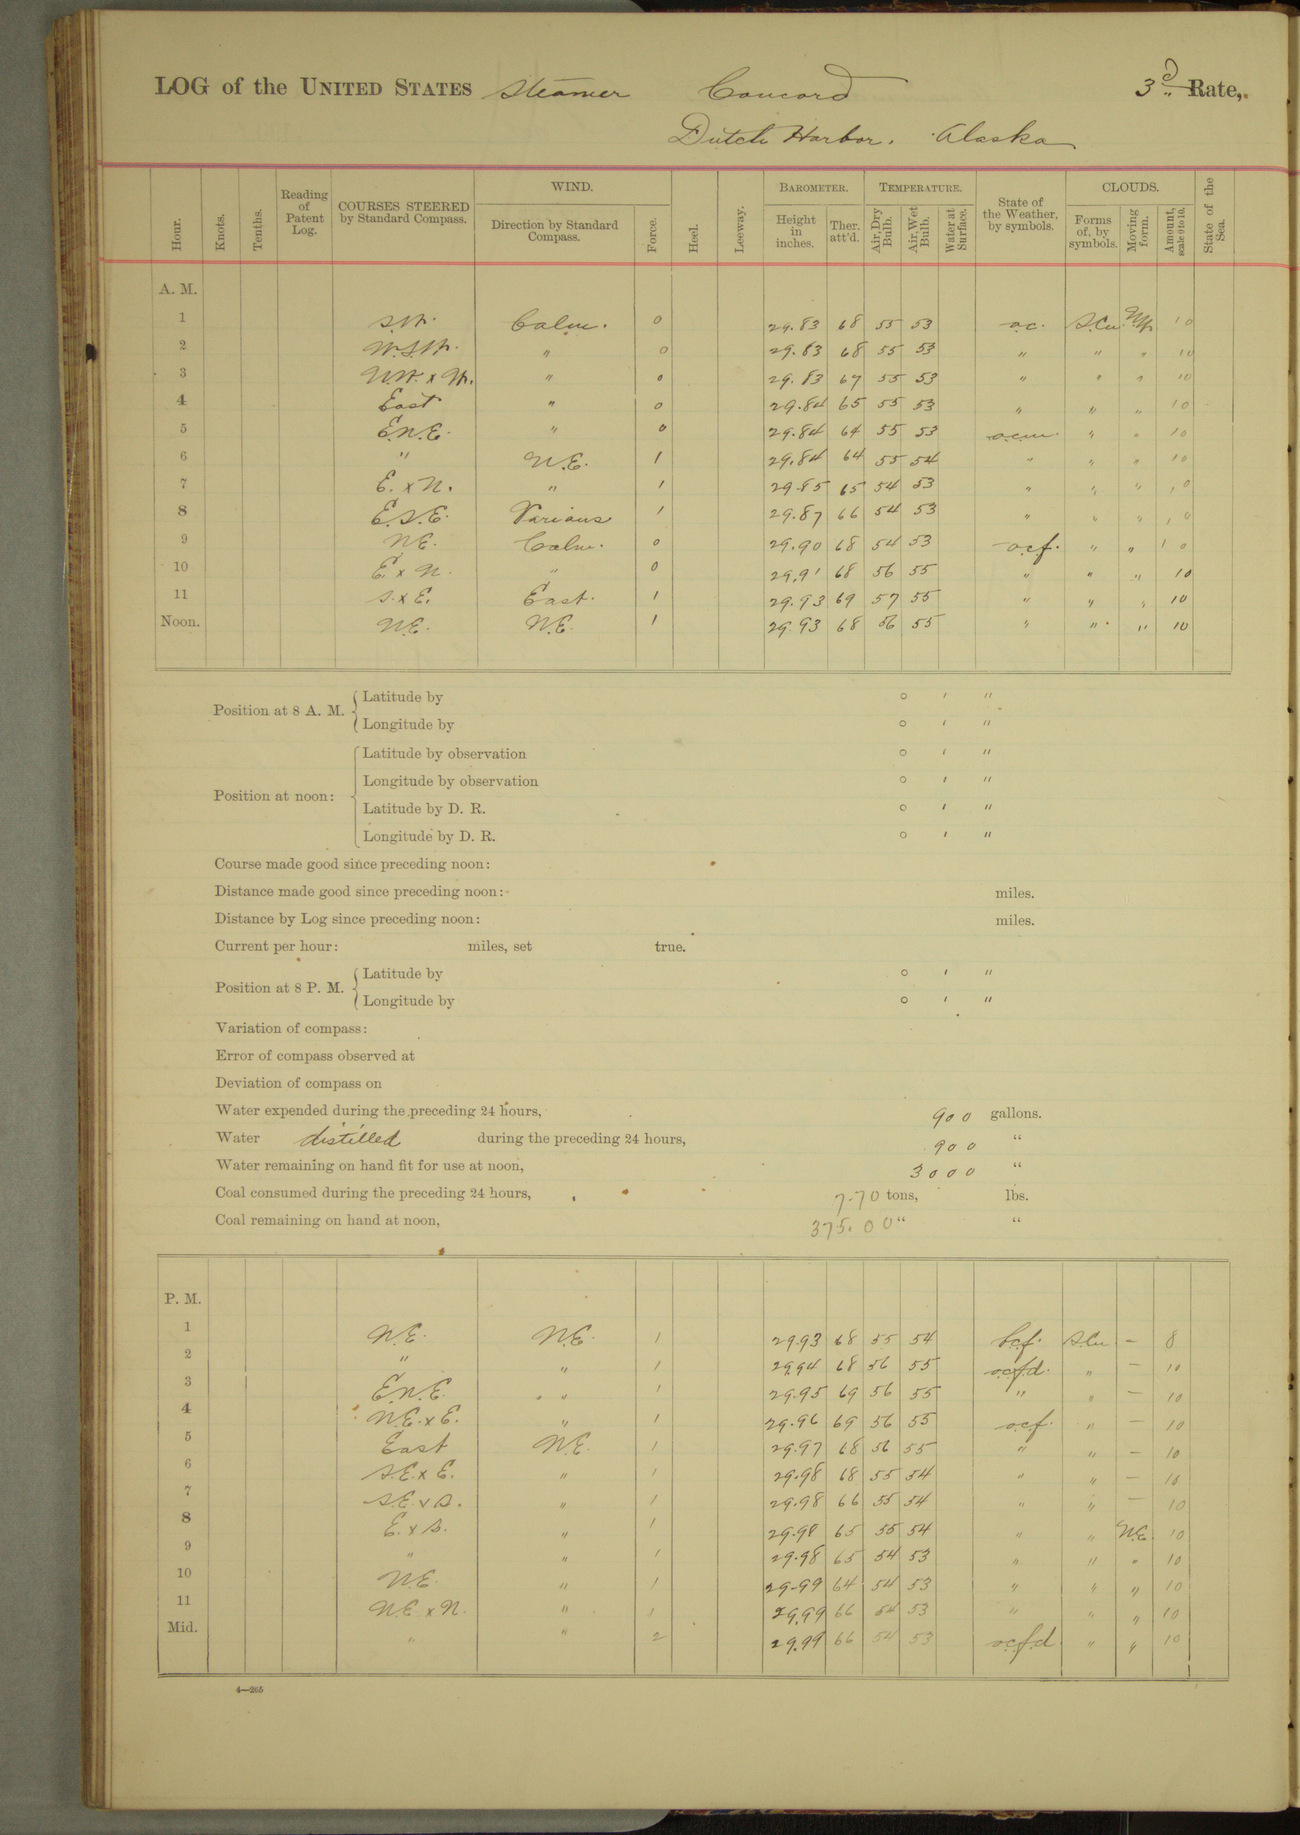 LOG of the UNITED STATES Steamer Concord 3d Rate,
Dutch Harbor, Alaska
Hour. Knots. Tenths. Reading of Patent Log. COURSES STEERED by Standard Compass. WIND. Direction by Standard Compass. Force. Heel. Leeway. BAROMETER. Height in inches. Ther. att'd. TEMPERATURE. Air, Dry Bulb. Air, Wet Bulb. Water at Surface. State of the Weather, by symbols. CLOUDS. Forms of, by symbols. Moving form. Amount, scale 0 to 10. State of the Sea.
A. M.
1 S.W. Calm. 0 29.83 68 55 53 o.c. S.Cu 10
2 W.S.W. " 0 29.83 68 55 53 " " " 10
3 N.W. x W. " 0 29.83 67 55 53 " " " 10
4 East " 0 29.84 65 55 53 " " " 10
5 E.N.E. " 0 29.84 64 55 53 o.c.m. " " 10
6 " N.E. 1 29.84 64 55 54 " " " 10
7 E. x N. " 1 29.85 65 54 53 " " " 10
8 E.S.E. Various 1 29.87 66 54 53 " " " 10
9 N.E. Calm. 0 29.90 68 54 53 o.c.f. " " 10
10 E. x N. " 0 29.91 68 56 55 " " " 10
11 S. x E. East. 1 29.93 69 57 55 " " " 10
Noon. N.E. N.E. 1 29.93 68 56 55 " " " 10
Position at 8 A. M. Latitude by ° ′ ″
Longitude by ° ′ ″
Position at noon: Latitude by observation ° ′ ″
Longitude by observation ° ′ ″
Latitude by D. R. ° ′ ″
Longitude by D. R. ° ′ ″
Course made good since preceding noon:
Distance made good since preceding noon: miles.
Distance by Log since preceding noon: miles.
Current per hour: miles, set true.
Position at 8 P. M. Latitude by ° ′ ″
Longitude by ° ′ ″
Variation of compass:
Error of compass observed at
Deviation of compass on
Water expended during the preceding 24 hours, 900 gallons.
Water distilled during the preceding 24 hours, 900 "
Water remaining on hand fit for use at noon, 3000 "
Coal consumed during the preceding 24 hours, 7.70 tons, lbs.
Coal remaining on hand at noon, 375.00 " "
P. M.
1 N.E. N.E. 1 29.93 68 55 54 b.c.f. S.Cu — 8
2 " " 1 29.94 68 56 55 o.c.f.d. " — 10
3 E.N.E. " 1 29.95 69 56 55 " " — 10
4 N.E. x E. " 1 29.96 69 56 55 o.c.f. " — 10
5 East N.E. 1 29.97 68 56 55 " " — 10
6 S.E. x E. " 1 29.98 68 55 54 " " — 10
7 S.E. x S. " 1 29.98 66 55 54 " " — 10
8 E. x S. " 1 29.98 65 55 54 " " N.E. 10
9 " " 1 29.98 65 54 53 " " " 10
10 N.E. " 1 29.99 64 54 53 " " " 10
11 N.E. x N. " 1 29.99 66 54 53 " " " 10
Mid. " " 2 29.99 66 54 53 o.c.f.d " " 10
4—265